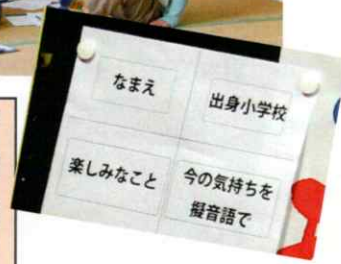 なまえ
出身小学校
楽しみなこと
今の気持ちを
擬音語で